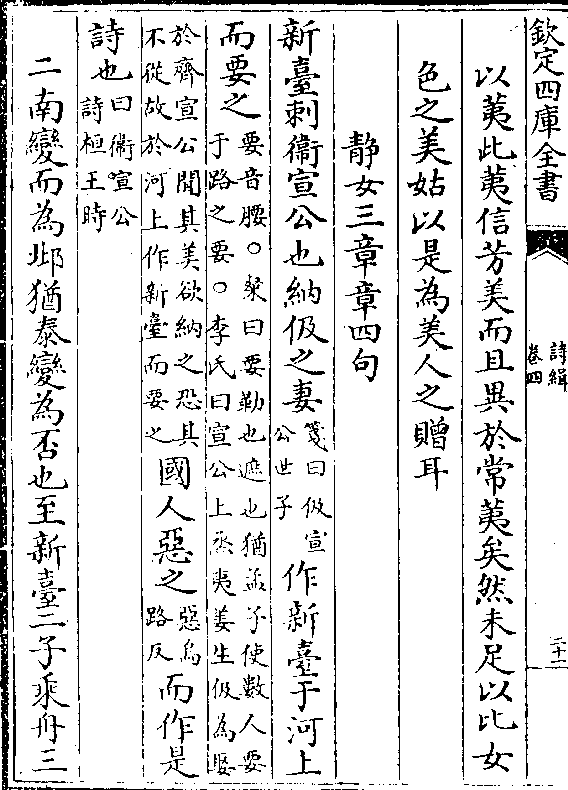 欽定四庫全書
詩緝
卷四
二十一
以荑此荑信芳美而且異於常荑矣然未足以比女
色之美姑以是為美人之贈耳
靜女三章章四句
新臺刺衛宣公也納伋之妻箋曰伋宣公世子作新臺于河上
而要之要音腰○粲曰要勒也遮也猶孟子使數人要于路之要○李氏曰宣公上烝夷姜生伋為娶
於齊宣公聞其美欲納之恐其不從故於河上作新臺而要之國人惡之惡烏路反而作是
詩也曰衛宣公詩桓王時
二南變而為邶猶泰變為否也至新臺二子乘舟三